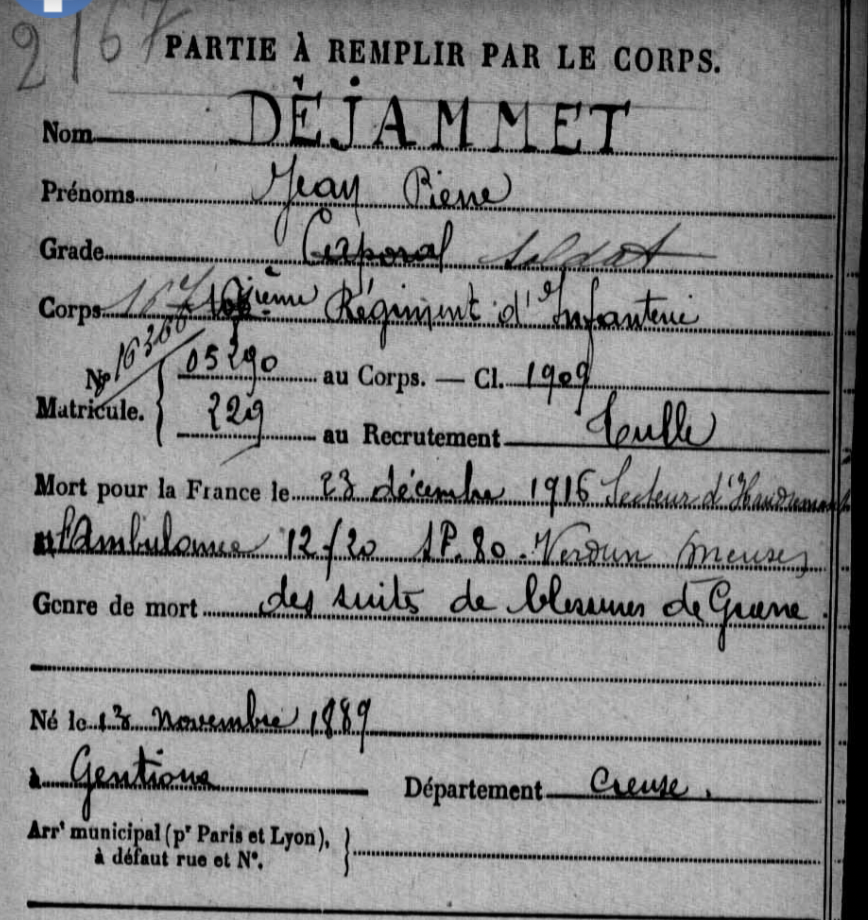 2167
PARTIE À REMPLIR PAR LE CORPS.
Nom DÉJAMMET
Prénoms Jean Pierre
Grade Caporal soldat
Corps 167 ième Régiment d'Infanterie
No 16366
05290 au Corps. — Cl. 1909
Matricule.
229 au Recrutement Tulle
Mort pour la France le 23 décembre 1916 Secteur d'Haudromont
l'Ambulance 12/20 SP. 80. Verdun Meuse
Genre de mort des suites de blessures de Guerre.
Né le 13 Novembre 1889
à Gentioux Département Creuse.
Arrt municipal (pr Paris et Lyon),
à défaut rue et N°.